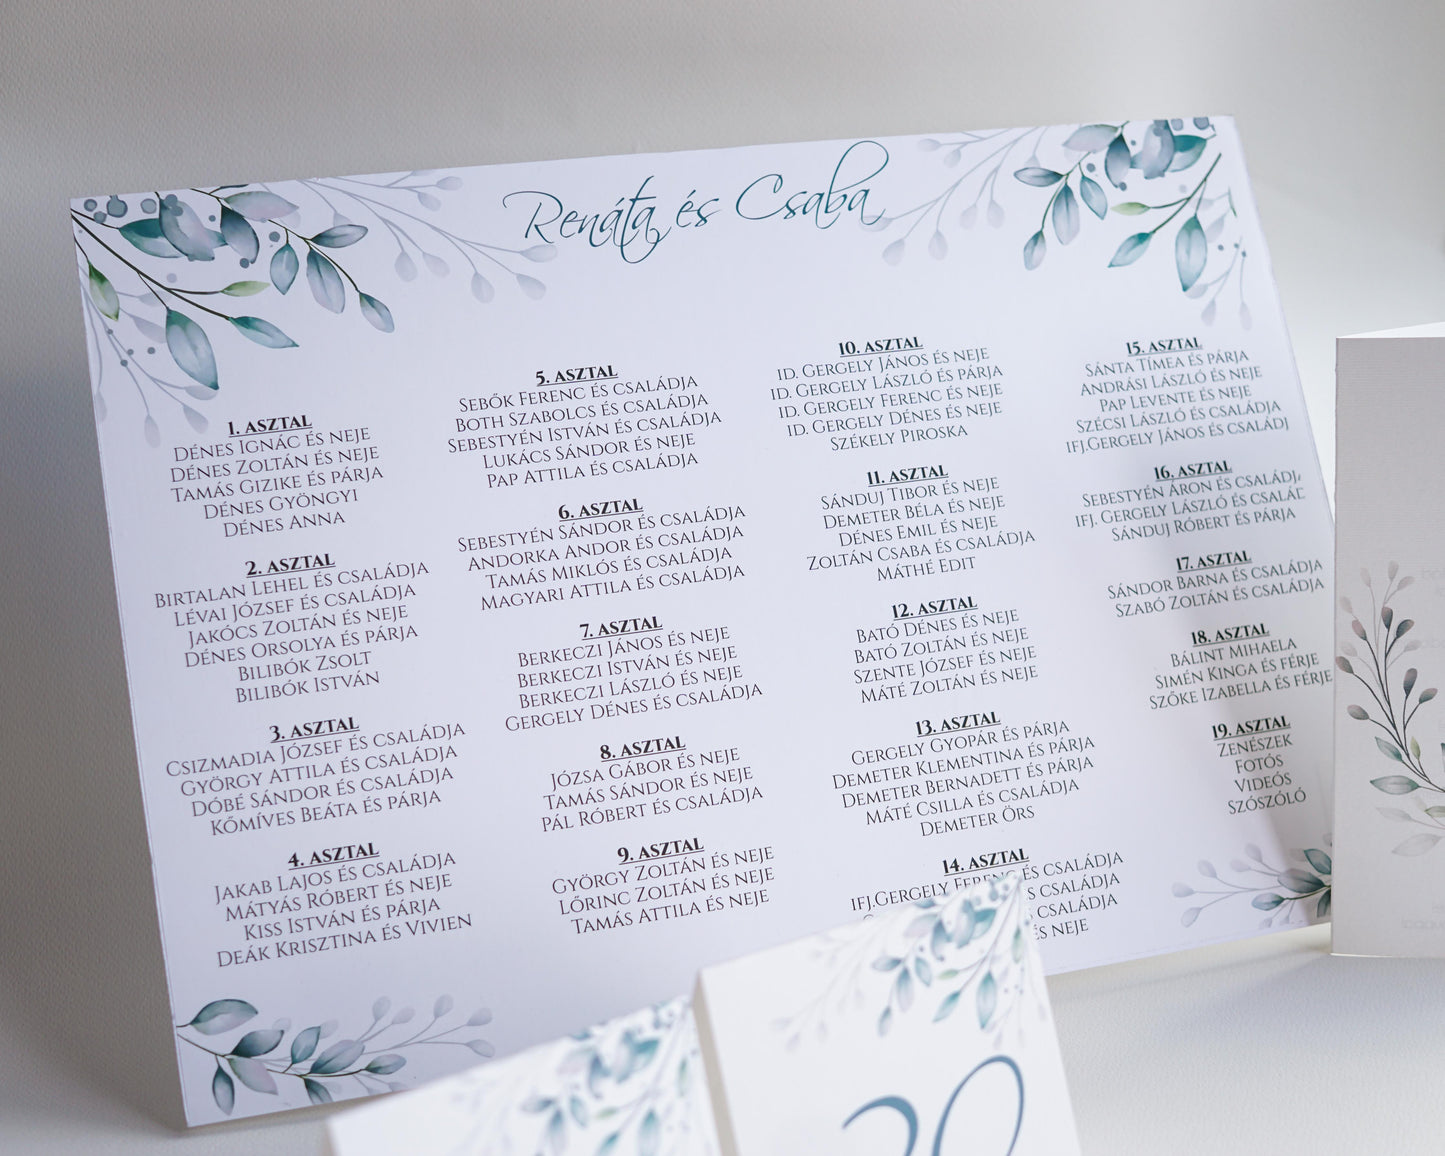 Renáta és Csaba
1. ASZTAL
DÉNES IGNÁC ÉS NEJE
DÉNES ZOLTÁN ÉS NEJE
TAMÁS GIZIKE ÉS PÁRJA
DÉNES GYÖNGYI
DÉNES ANNA
2. ASZTAL
BIRTALAN LEHEL ÉS CSALÁDJA
LÉVAI JÓZSEF ÉS CSALÁDJA
JAKÓCS ZOLTÁN ÉS NEJE
DÉNES ORSOLYA ÉS PÁRJA
BILIBÓK ZSOLT
BILIBÓK ISTVÁN
3. ASZTAL
CSIZMADIA JÓZSEF ÉS CSALÁDJA
GYÖRGY ATTILA ÉS CSALÁDJA
DÓBÉ SÁNDOR ÉS CSALÁDJA
KŐMÍVES BEÁTA ÉS PÁRJA
4. ASZTAL
JAKAB LAJOS ÉS CSALÁDJA
MÁTYÁS RÓBERT ÉS NEJE
KISS ISTVÁN ÉS PÁRJA
DEÁK KRISZTINA ÉS VIVIEN
5. ASZTAL
SEBŐK FERENC ÉS CSALÁDJA
BOTH SZABOLCS ÉS CSALÁDJA
SEBESTYÉN ISTVÁN ÉS CSALÁDJA
LUKÁCS SÁNDOR ÉS NEJE
PAP ATTILA ÉS CSALÁDJA
6. ASZTAL
SEBESTYÉN SÁNDOR ÉS CSALÁDJA
ANDORKA ANDOR ÉS CSALÁDJA
TAMÁS MIKLÓS ÉS CSALÁDJA
MAGYARI ATTILA ÉS CSALÁDJA
7. ASZTAL
BERKECZI JÁNOS ÉS NEJE
BERKECZI ISTVÁN ÉS NEJE
BERKECZI LÁSZLÓ ÉS NEJE
GERGELY DÉNES ÉS CSALÁDJA
8. ASZTAL
JÓZSA GÁBOR ÉS NEJE
TAMÁS SÁNDOR ÉS NEJE
PÁL RÓBERT ÉS CSALÁDJA
9. ASZTAL
GYÖRGY ZOLTÁN ÉS NEJE
LŐRINC ZOLTÁN ÉS NEJE
TAMÁS ATTILA ÉS NEJE
10. ASZTAL
ID. GERGELY JÁNOS ÉS NEJE
ID. GERGELY LÁSZLÓ ÉS PÁRJA
ID. GERGELY FERENC ÉS NEJE
ID. GERGELY DÉNES ÉS NEJE
SZÉKELY PIROSKA
11. ASZTAL
SÁNDUJ TIBOR ÉS NEJE
DEMETER BÉLA ÉS NEJE
DÉNES EMIL ÉS NEJE
ZOLTÁN CSABA ÉS CSALÁDJA
MÁTHÉ EDIT
12. ASZTAL
BATÓ DÉNES ÉS NEJE
BATÓ ZOLTÁN ÉS NEJE
SZENTE JÓZSEF ÉS NEJE
MÁTÉ ZOLTÁN ÉS NEJE
13. ASZTAL
GERGELY GYOPÁR ÉS PÁRJA
DEMETER KLEMENTINA ÉS PÁRJA
DEMETER BERNADETT ÉS PÁRJA
MÁTÉ CSILLA ÉS CSALÁDJA
DEMETER ÖRS
14. ASZTAL
IFJ.GERGELY FERENC ÉS CSALÁDJA
CSALÁDJA
CSALÁDJA
ÉS NEJE
15. ASZTAL
SÁNTA TÍMEA ÉS PÁRJA
ANDRÁSI LÁSZLÓ ÉS NEJE
PAP LEVENTE ÉS NEJE
SZÉCSI LÁSZLÓ ÉS CSALÁDJA
IFJ.GERGELY JÁNOS ÉS CSALÁDJ
16. ASZTAL
SEBESTYÉN ÁRON ÉS CSALÁDJ
IFJ. GERGELY LÁSZLÓ ÉS CSALÁD
SÁNDUJ RÓBERT ÉS PÁRJA
17. ASZTAL
SÁNDOR BARNA ÉS CSALÁDJA
SZABÓ ZOLTÁN ÉS CSALÁDJA
18. ASZTAL
BÁLINT MIHAELA
SIMÉN KINGA ÉS FÉRJE
SZŐKE IZABELLA ÉS FÉRJE
19. ASZTAL
ZENÉSZEK
FOTÓS
VIDEÓS
SZÓSZÓLÓ
20